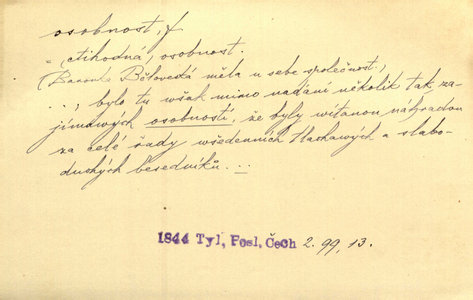 osobnost, f
= ctihodná, osobnost.
(Baronka Bělovecká měla u sebe společnost,
..., bylo tu však mimo nadání několik tak za-
jímavých osobností, že byly vítanou náhradou
za celé řady wšedenních tlachawých a slabo-
duchých besedníků...
1844 Tyl, Posl. Čech 2. 99, 13.